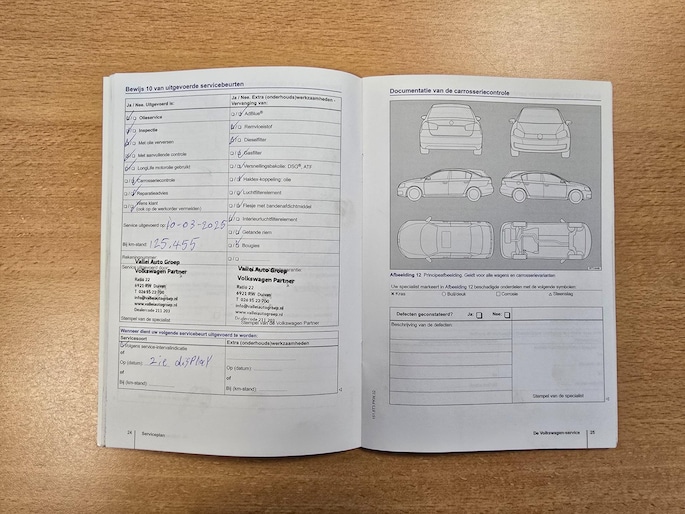 Bewijs 10 van uitgevoerde servicebeurten
Ja / Nee. Uitgevoerd is:
Olieservice
Inspectie
Met olie verversen
Met aanvullende controle
LongLife motorolie gebruikt
Carrosseriecontrole
Reparatieadvies
Wens klant
(ook op de werkorder vermelden)
Service uitgevoerd op: 10-03-2025
Bij km-stand: 125.455
Rekeningnummer:
Service uitgevoerd door:
Vallei Auto Groep
Volkswagen Partner
Radia 22
6921 RW Duiven
info@valleiautogroep.nl
www.valleiautogroep.nl
Dealercode 211 203
Stempel van de specialist
Ja / Nee. Extra (onderhouds)werkzaamheden -
Vervanging van:
AdBlue®
Remvloeistof
Dieselfilter
Gasfilter
Versnellingsbakolie: DSG®, ATF
Haldex-koppeling: olie
Luchtfilterelement
Flesje met bandenafdichtmiddel
Interieurluchtfilterelement
Getande riem
Bougies
Vallei Auto Groep
Volkswagen Partner
Radia 22
6921 RW Duiven
info@valleiautogroep.nl
www.valleiautogroep.nl
Dealercode 211 203
Stempel van de Volkswagen Partner
Wanneer dient uw volgende servicebeurt uitgevoerd te worden:
Servicesoort
Volgens service-intervalindicatie
of
Op (datum): zie display
of
Bij (km-stand):
Extra (onderhouds)werkzaamheden:
Op (datum):
of
Bij (km-stand):
24 Serviceplan
Documentatie van de carrosseriecontrole
Afbeelding 12 Principeafbeelding. Geldt voor alle wagens en carrosserievarianten
Uw specialist markeert in Afbeelding 12 beschadigde onderdelen met de volgende symbolen:
Kras Buts/deuk Corrosie Steenslag
Defecten geconstateerd? Ja: Nee:
Beschrijving van de defecten:
Stempel van de specialist
De Volkswagen-service 25